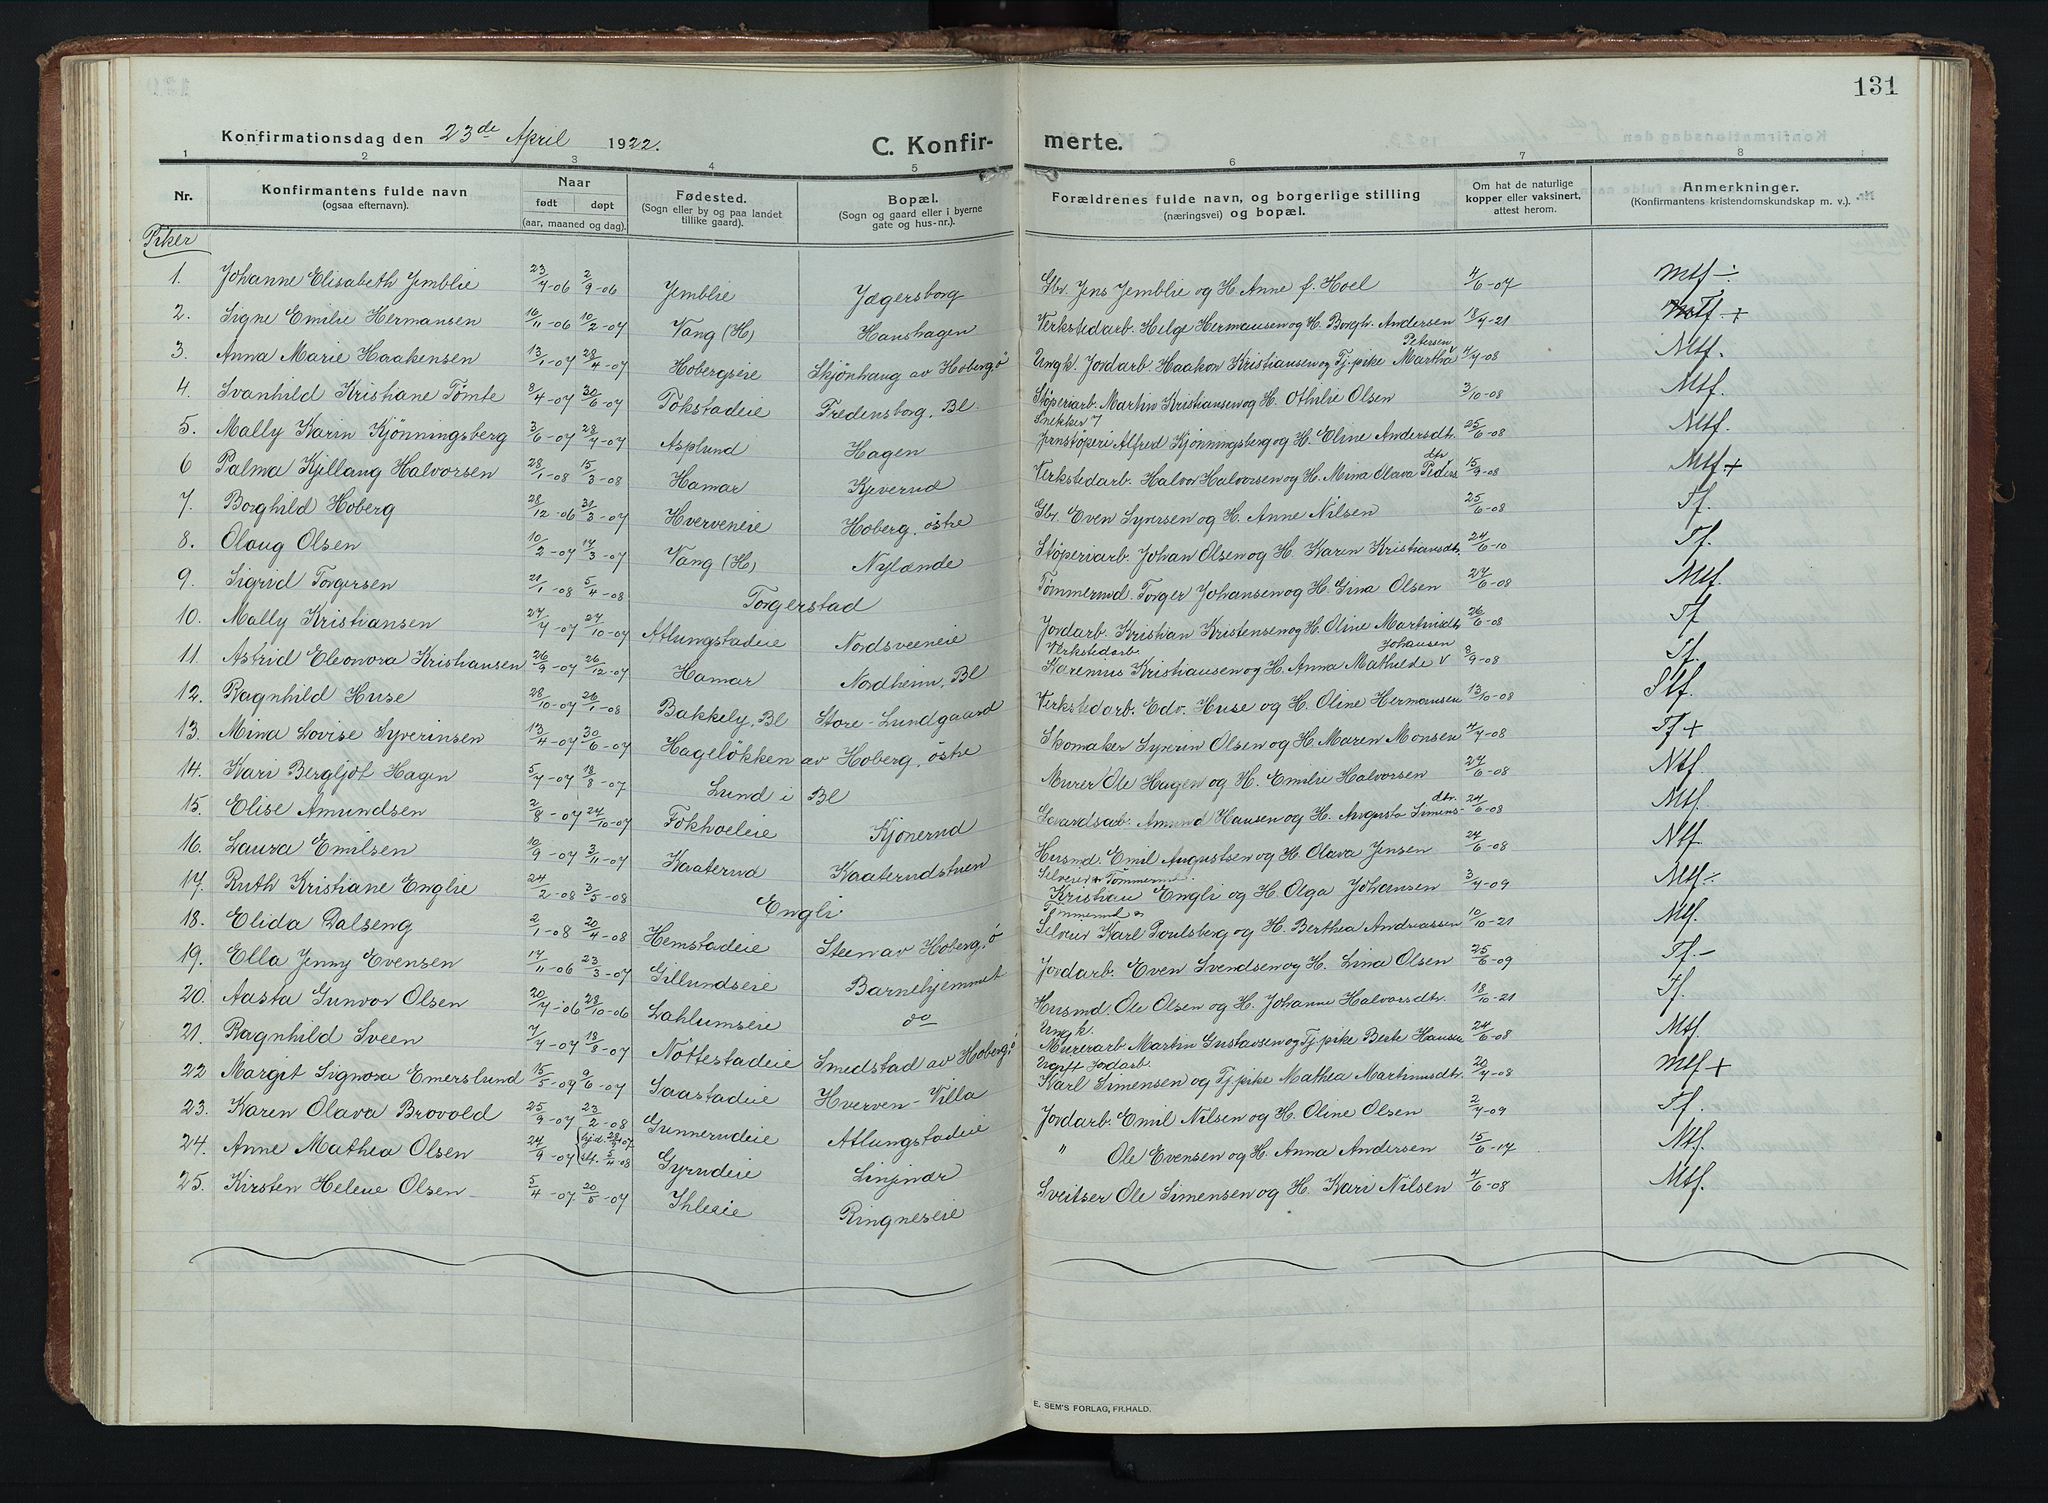 131
Konfirmationsdag den 23de April 1922.
C. Konfir- merte.
1 2 3 4 5 6 7 8
Nr. Konfirmantens fulde navn (ogsaa efternavn). Naar født døpt (aar, maaned og dag). Fødested. (Sogn eller by og paa landet tillike gaard). Bopæl. (Sogn og gaard eller i byerne gate og hus-nr.). Forældrenes fulde navn, og borgerlige stilling (næringsvei) og bopæl. Om hat de naturlige kopper eller vaksinert, attest herom. Anmerkninger. (Konfirmantens kristendomskundskap m. v.).
Piker
1. Johanne Elisabeth Jemblie 23/7-06 2/9-06 Jemblie Jægersborg Gbr. Jens Jemblie og H. Anne f. Hoel 4/6-07 Mtf ÷
2. Signe Emilie Hermansen 16/11-06 10/2-07 Vang (H) Hanshagen Verkstedarb. Helge Hermansen og H. Borgh. Andersen 18/4-21 Mtf. +
3. Anna Marie Haakensen 13/1-07 28/4-07 Hobergseie Skjønhaug av Hoberg ö Ungk. Jordarb. Haakon Kristiansen og Tj.pike Martha Petersen 4/7-08 Mtf.
4. Svanhild Kristiane Tømte 8/4-07 30/6-07 Tokstadeie Fredensborg, Bl. Støperiarb. Martin Kristiansen og H. Othilie Olsen 3/10-08 Mtf.
5. Mally Karin Kjønningsberg 3/6-07 28/7-07 Asplund Hagen Snekker Jernstöperi Alfred Kjønningsberg og H. Eline Andersdtr. 25/6-08 Mtf.
6 Palma Kjellaug Halvorsen 28/1-08 15/3-08 Hamar Kjeverud Verkstedarb. Halvor Halvorsen og H. Mina Olava Pedersdtr 15/9-08 Mtf +
7. Borghild Hoberg 28/12-06 31/3-07 Hverveneie Hoberg, östre Gbr. Even Syversen og H. Anne Nilsen 25/6-08 Tf.
8. Olaug Olsen 10/2-07 17/3-07 Vang (H) Nylænde Støperiarb. Johan Olsen og H. Karen Kristiansdtr. 24/6-10 Tf.
9. Sigrid Torgersen 21/1-08 5/4-08 Torgerstad Tømmermd. Torger Johansen og H. Gina Olsen 27/6-08 Mtf.
10. Mally Kristiansen 27/7-07 27/10-07 Atlungstadeie Nordsveeneie Jordarb. Kristian Kristensen og H. Oline Martinsdtr. 26/6-08 Tf
11. Astrid Eleonora Kristiansen 26/9-07 26/12-07 Hamar Nordheim, Bl Verkstedarb. Karenius Kristiansen og H. Anna Mathilde Johansen 3/9-08 Tf.
12. Ragnhild Huse 28/10-07 26/1-08 Bakkely, Bl Store-Lundgaard Verkstedarb. Edv. Huse og H. Oline Hermansen 13/10-08 Stf.
13. Mina Lovise Syverinsen 13/4-07 30/6-07 Hageløkken av Hoberg, östre Skomaker Syverin Olsen og H. Maren Monsen 4/7-08 Tf +
14. Kari Bergljot Hagen 5/7-07 18/8-07 Lund i Bl Murer Ole Hagen og H. Emilie Halvorsen 27/6-08 Ntf.
15. Elise Amundsen 2/8-07 27/10-07 Fokholeie Kjønerud Gaardsarb. Amund Hansen og H. Augusta Simensdtr. 24/6-08 Mtf.
16. Laura Emilsen 10/9-07 3/11-07 Kaaterud Kaaterudstuen Husmd. Emil Augustsen og H. Olava Jensen 24/6-08 Ntf.
17. Ruth Kristiane Englie 24/2-08 3/5-08 Engli Selveier & Tömmermd. Kristian Engli og H. Olga Johansen 3/7-09 Mtf ÷
18. Elida Dalseng 2/1-08 20/4-08 Hemstadeie Steen av Hoberg, ö Tømmermd. & Selveier Karl Poulsberg og H. Berthea Andreassen 10/10-21 Mtf.
19. Ella Jenny Evensen 17/11-06 23/3-07 Gillundseie Barnehjemmet Jordarb. Even Svendsen og H. Lina Olsen 25/6-09 Tf. -
20. Aasta Gunvor Olsen 20/7-06 28/10-06 Lahlumseie do Husmd. Ole Olsen og H. Johanne Halvorsdtr. 18/10-21 Tf.
21. Ragnhild Sveen 7/7-07 18/8-07 Nøttestadeie Smedstad av Hoberg, ö Ungk. Murerarb. Martin Gustavsen og Tj.pike Berte Hansen 24/6-08 Mtf.
22 Margit Signora Emerslund 15/5-07 9/6-07 Saastadeie Hverven-Villa Ugift Jordarb. Karl Simensen og Tj.pike Mathea Martinusdtr. 20/7-08 Mtf +
23. Karen Olava Brovold 25/9-07 23/2-08 Gunnerudeie Atlungstadeie Jordarb. Emil Nilsen og H. Oline Olsen 2/7-09 Tf.
24. Anne Mathea Olsen 24/9-07 hjd. 28/9 07. st. 5/4-08 Gyrudeie Linjndr " Ole Evensen og H. Anna Andersen 15/6-17 Ntf.
25. Kirsten Helene Olsen 5/4-07 20/5-07 Ihleeie Ringneseie Sveitser Ole Simensen og H. Kari Nilsen 4/6-08 Mtf.
E. SEM'S FORLAG, FR.HALD.